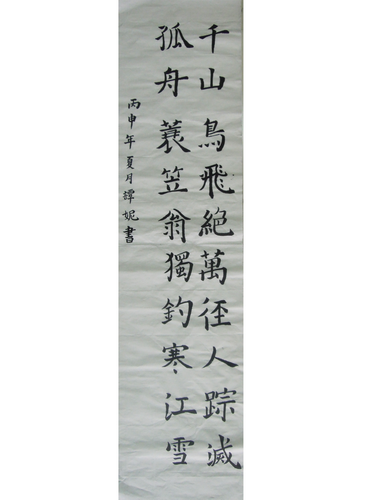 千山鳥飛絕萬徑人踪滅
孤舟蓑笠翁獨釣寒江雪
丙申年夏月譚妮書